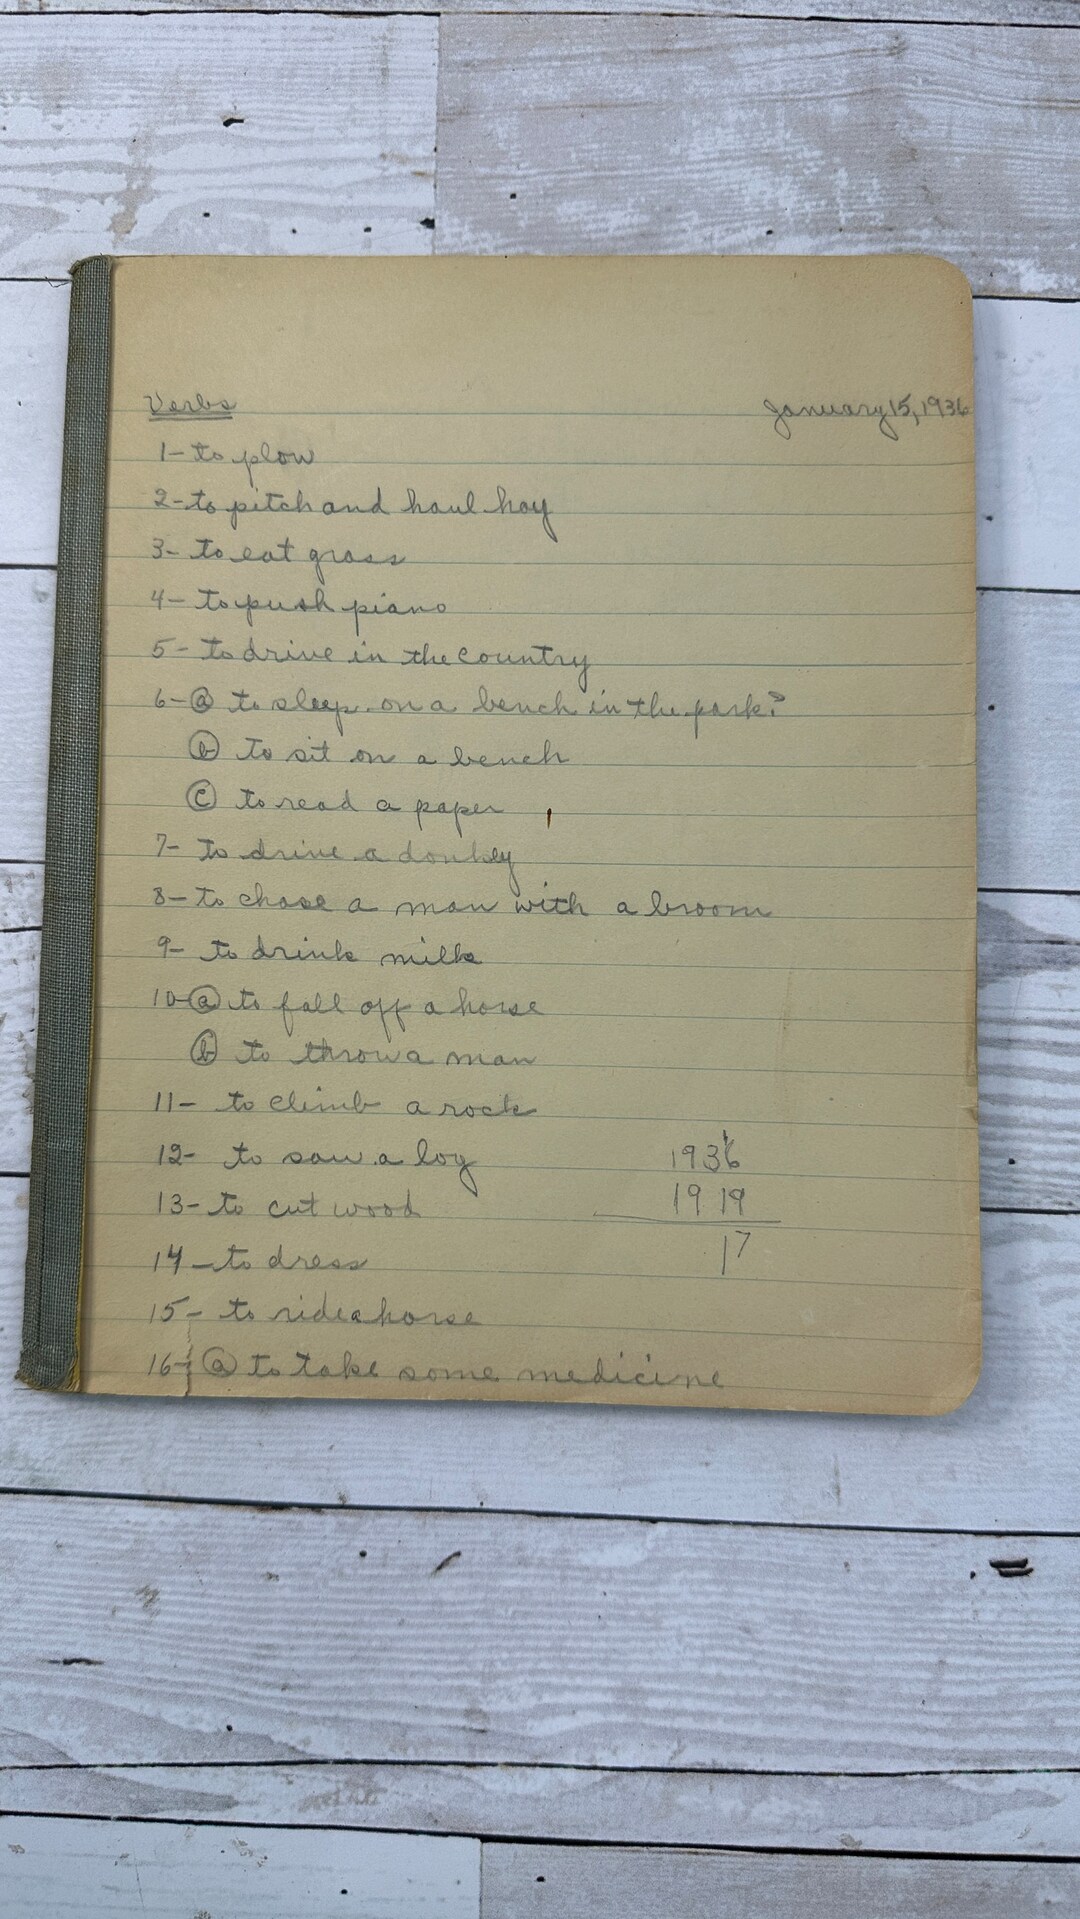 Verbs January 15, 1936
1- to plow
2- to pitch and haul hay
3- to eat grass
4- to push piano
5- to drive in the country
6- ⓐ to sleep on a bench in the park?
ⓑ to sit on a bench
ⓒ to read a paper
7- to drive a donkey
8- to chase a man with a broom
9- to drink milk
10- ⓐ to fall off a horse
ⓑ to throw a man
11- to climb a rock
12- to saw a log 1936
13- to cut wood 1919
14- to dress 17
15- to ride a horse
16- ⓐ to take some medicine